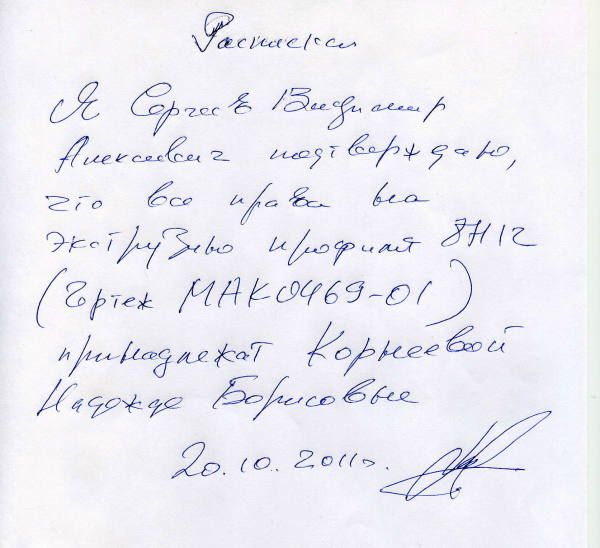 Расписка
Я Сергеев Владимир
Алексеевич подтверждаю,
что все права на
экструзию профиля 8Н12
(Чертеж МАК0469-01)
принадлежат Корнеевой
Надежде Борисовне
20.10.2011г.